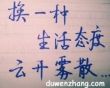 换一种
生活态度
云开雾散...
www.duwenzhang.com